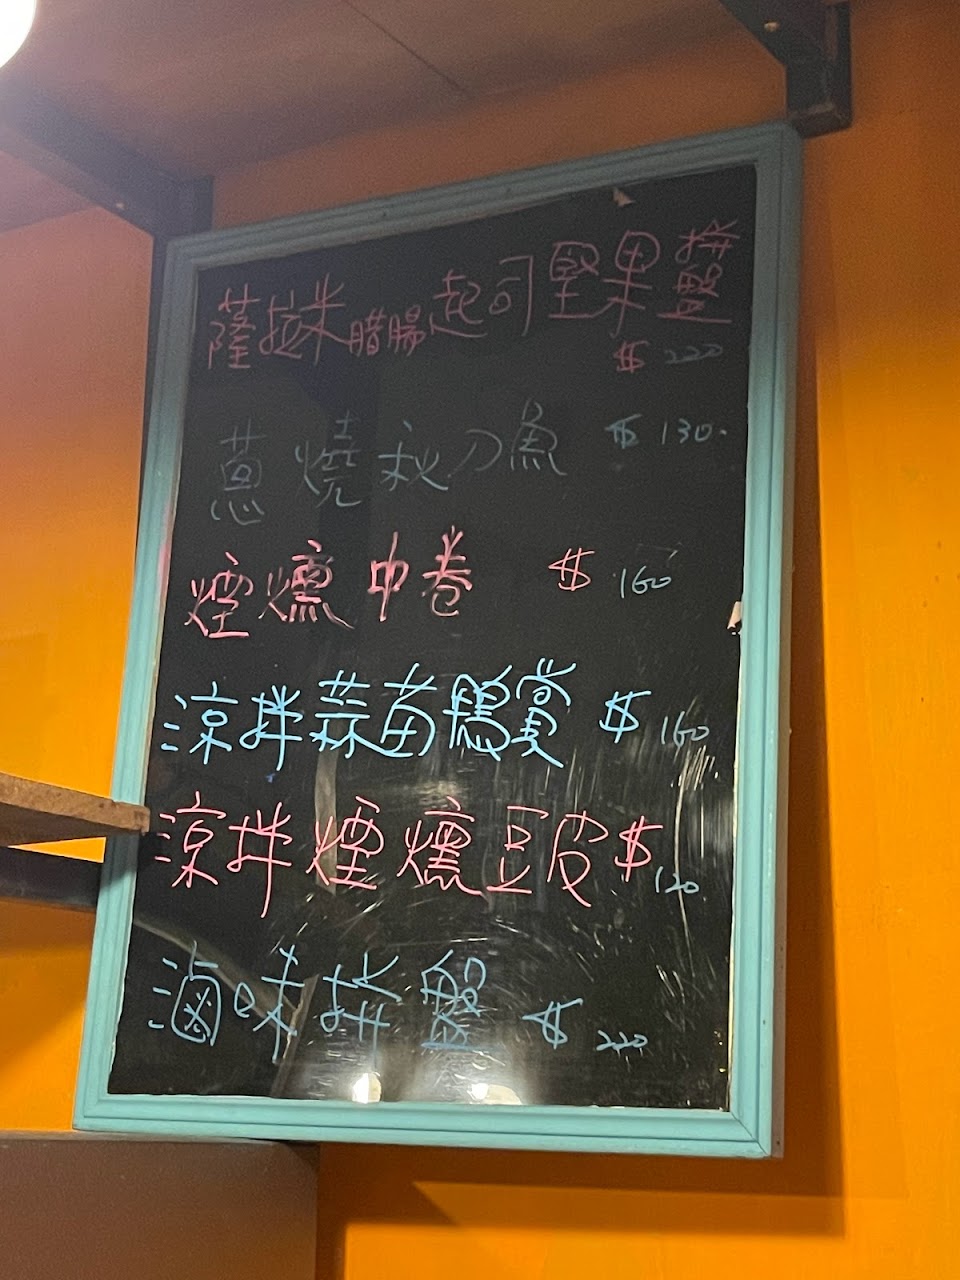 薩拉米腊腸起司堅果拼盤
$220
蔥燒秋刀魚 $130.
煙燻中卷 $160
涼拌蒜苗鴨賞 $160
涼拌煙燻豆皮 $120
滷味拼盤 $220